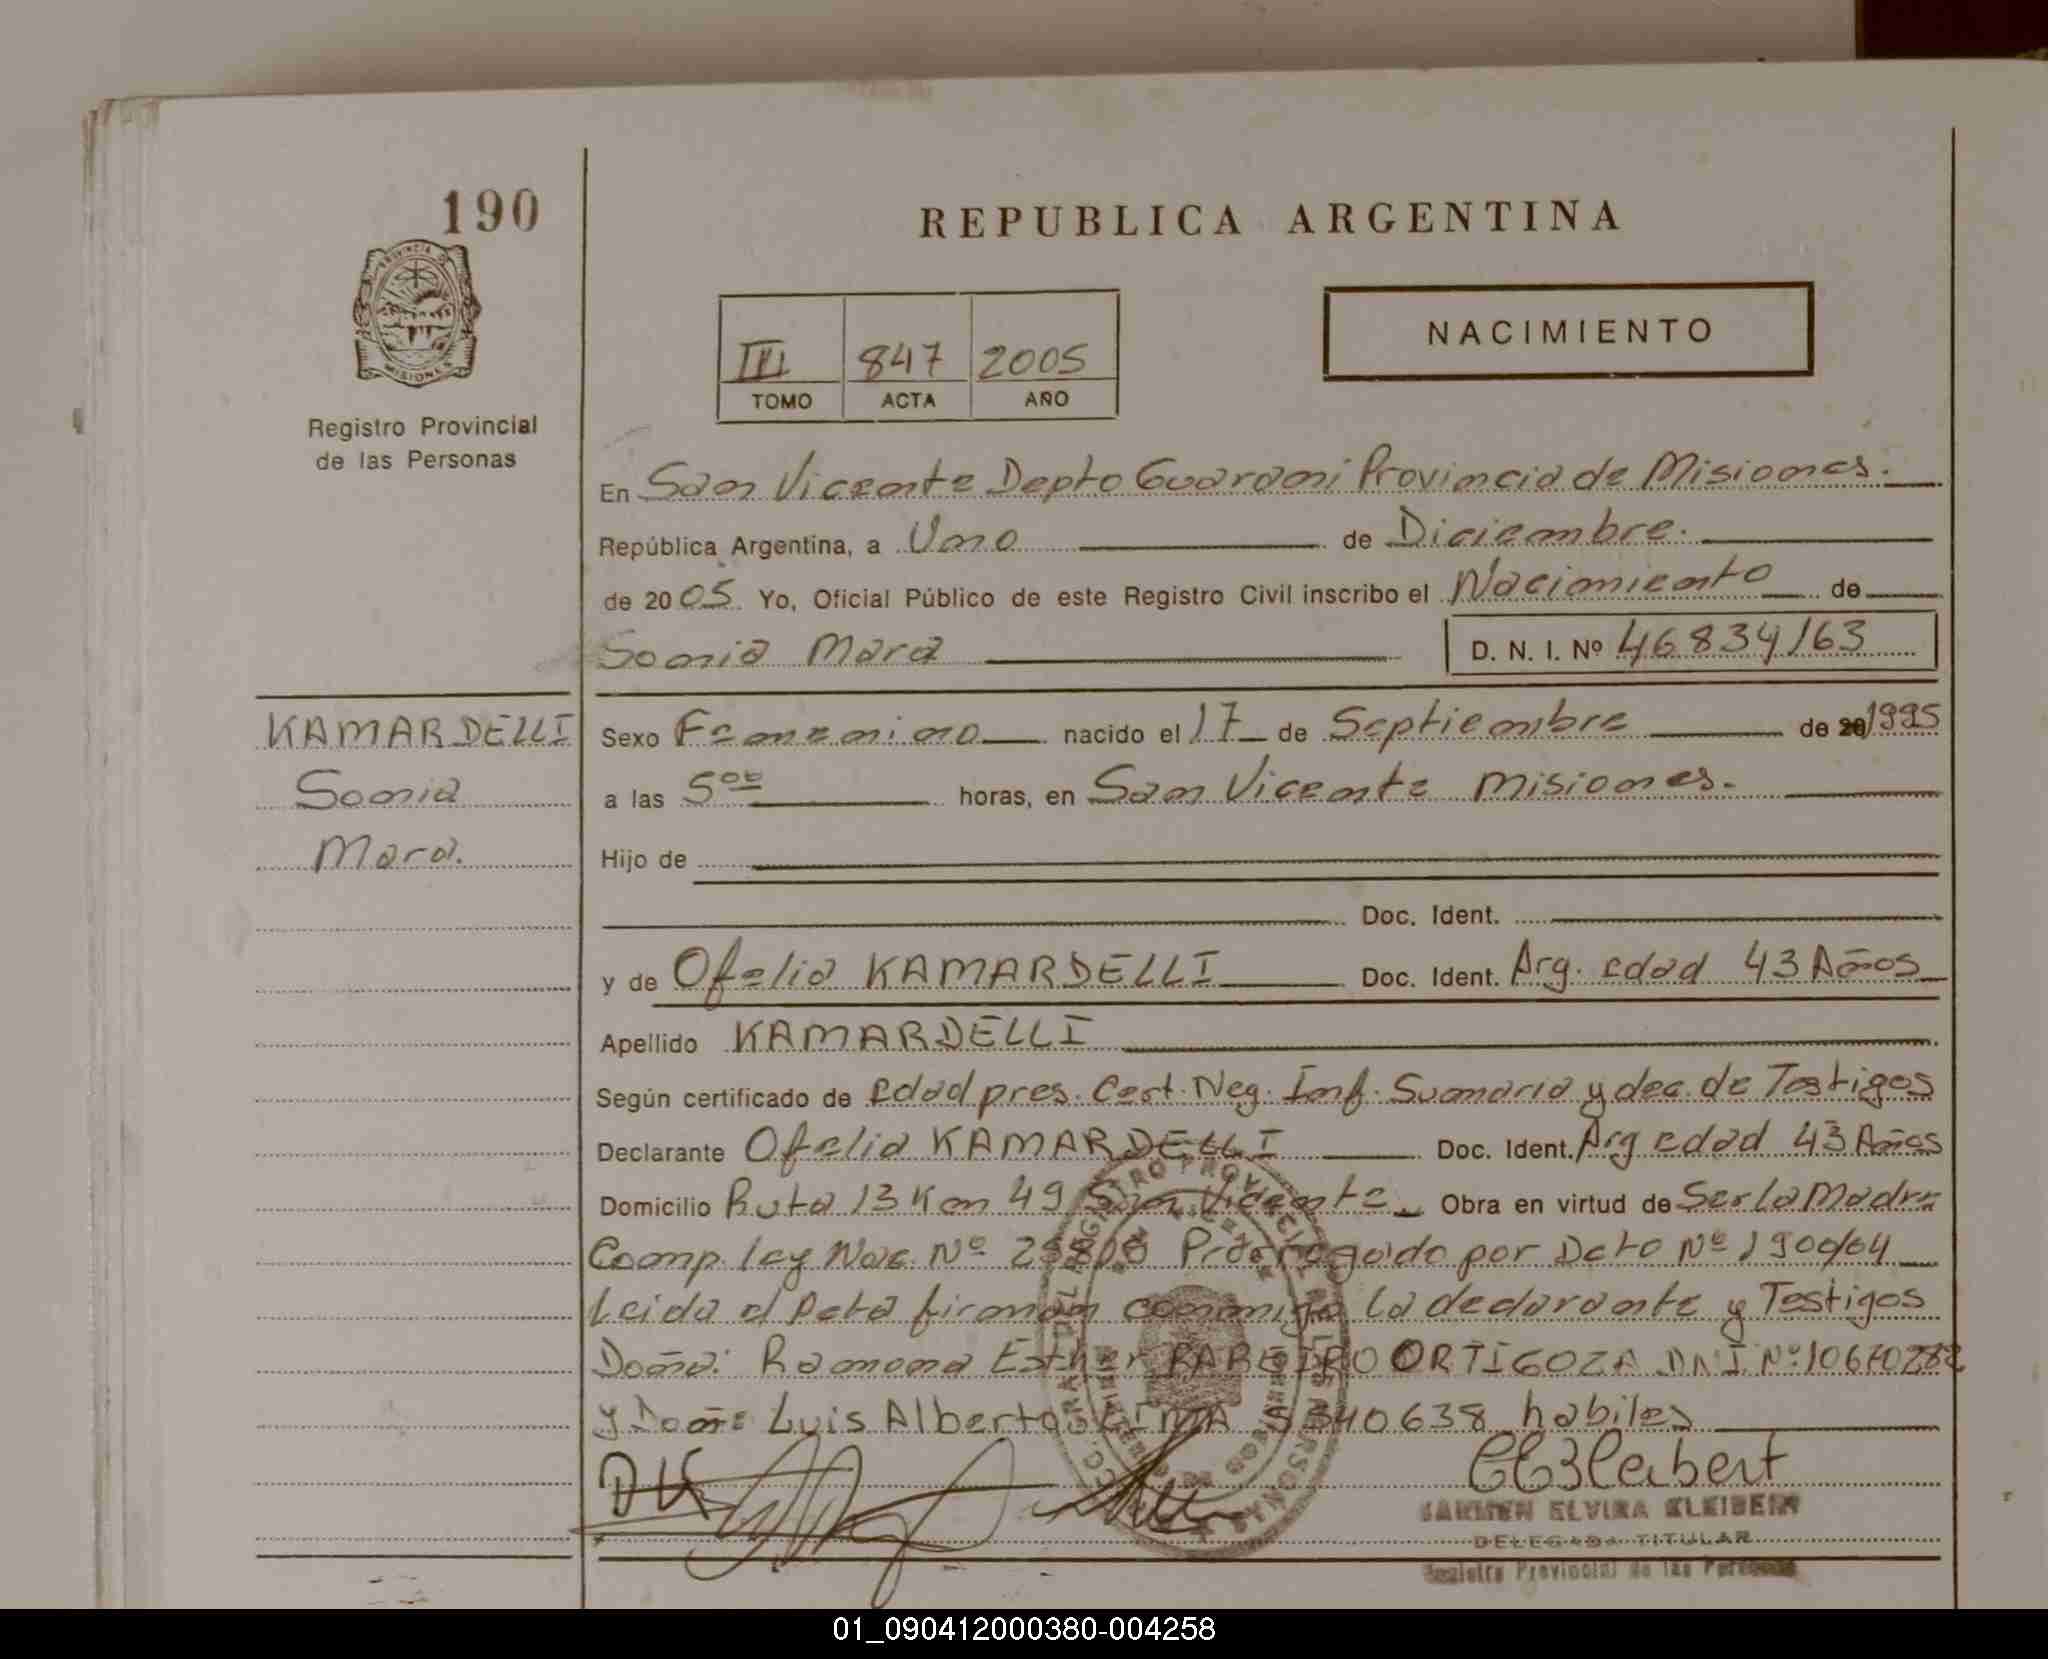 190
REPUBLICA ARGENTINA
NACIMIENTO
III 847 2005
TOMO ACTA AÑO
MISIONES
Registro Provincial
de las Personas
En San Vicente Depto Guarani Provincia de Misiones.
República Argentina, a Uno de Diciembre.
de 2005 Yo, Oficial Público de este Registro Civil inscribo el Nacimiento de
Sonia Mara D. N. I. Nº 46834163
KAMARDELLI
Sonia
Mara.
Sexo Femenino nacido el 17 de Septiembre de 1995
a las 5ºº horas, en San Vicente Misiones.
Hijo de
Doc. Ident.
y de Ofelia KAMARDELLI Doc. Ident. Arg. edad 43 Años
Apellido KAMARDELLI
Según certificado de edad pres. Cert. Neg. Inf. Sumaria y dec. de Testigos
Declarante Ofelia KAMARDELLI Doc. Ident. Arg edad 43 Años
Domicilio Ruta 13 Km 49 San Vicente Obra en virtud de Ser la Madre
Comp. ley Nac. Nº Prorrogado por Dcto Nº 1900/04
Leida el Acta firman conmigo la declarante y Testigos
Doña: Ramona Esther ORTIGOZA DNI Nº
y Don: Luis Alberto LIMA 5540638 habiles
CARMEN ELVIRA KLEIBERT
DELEGADA TITULAR
Registro Provincial de las Personas
01_090412000380-004258